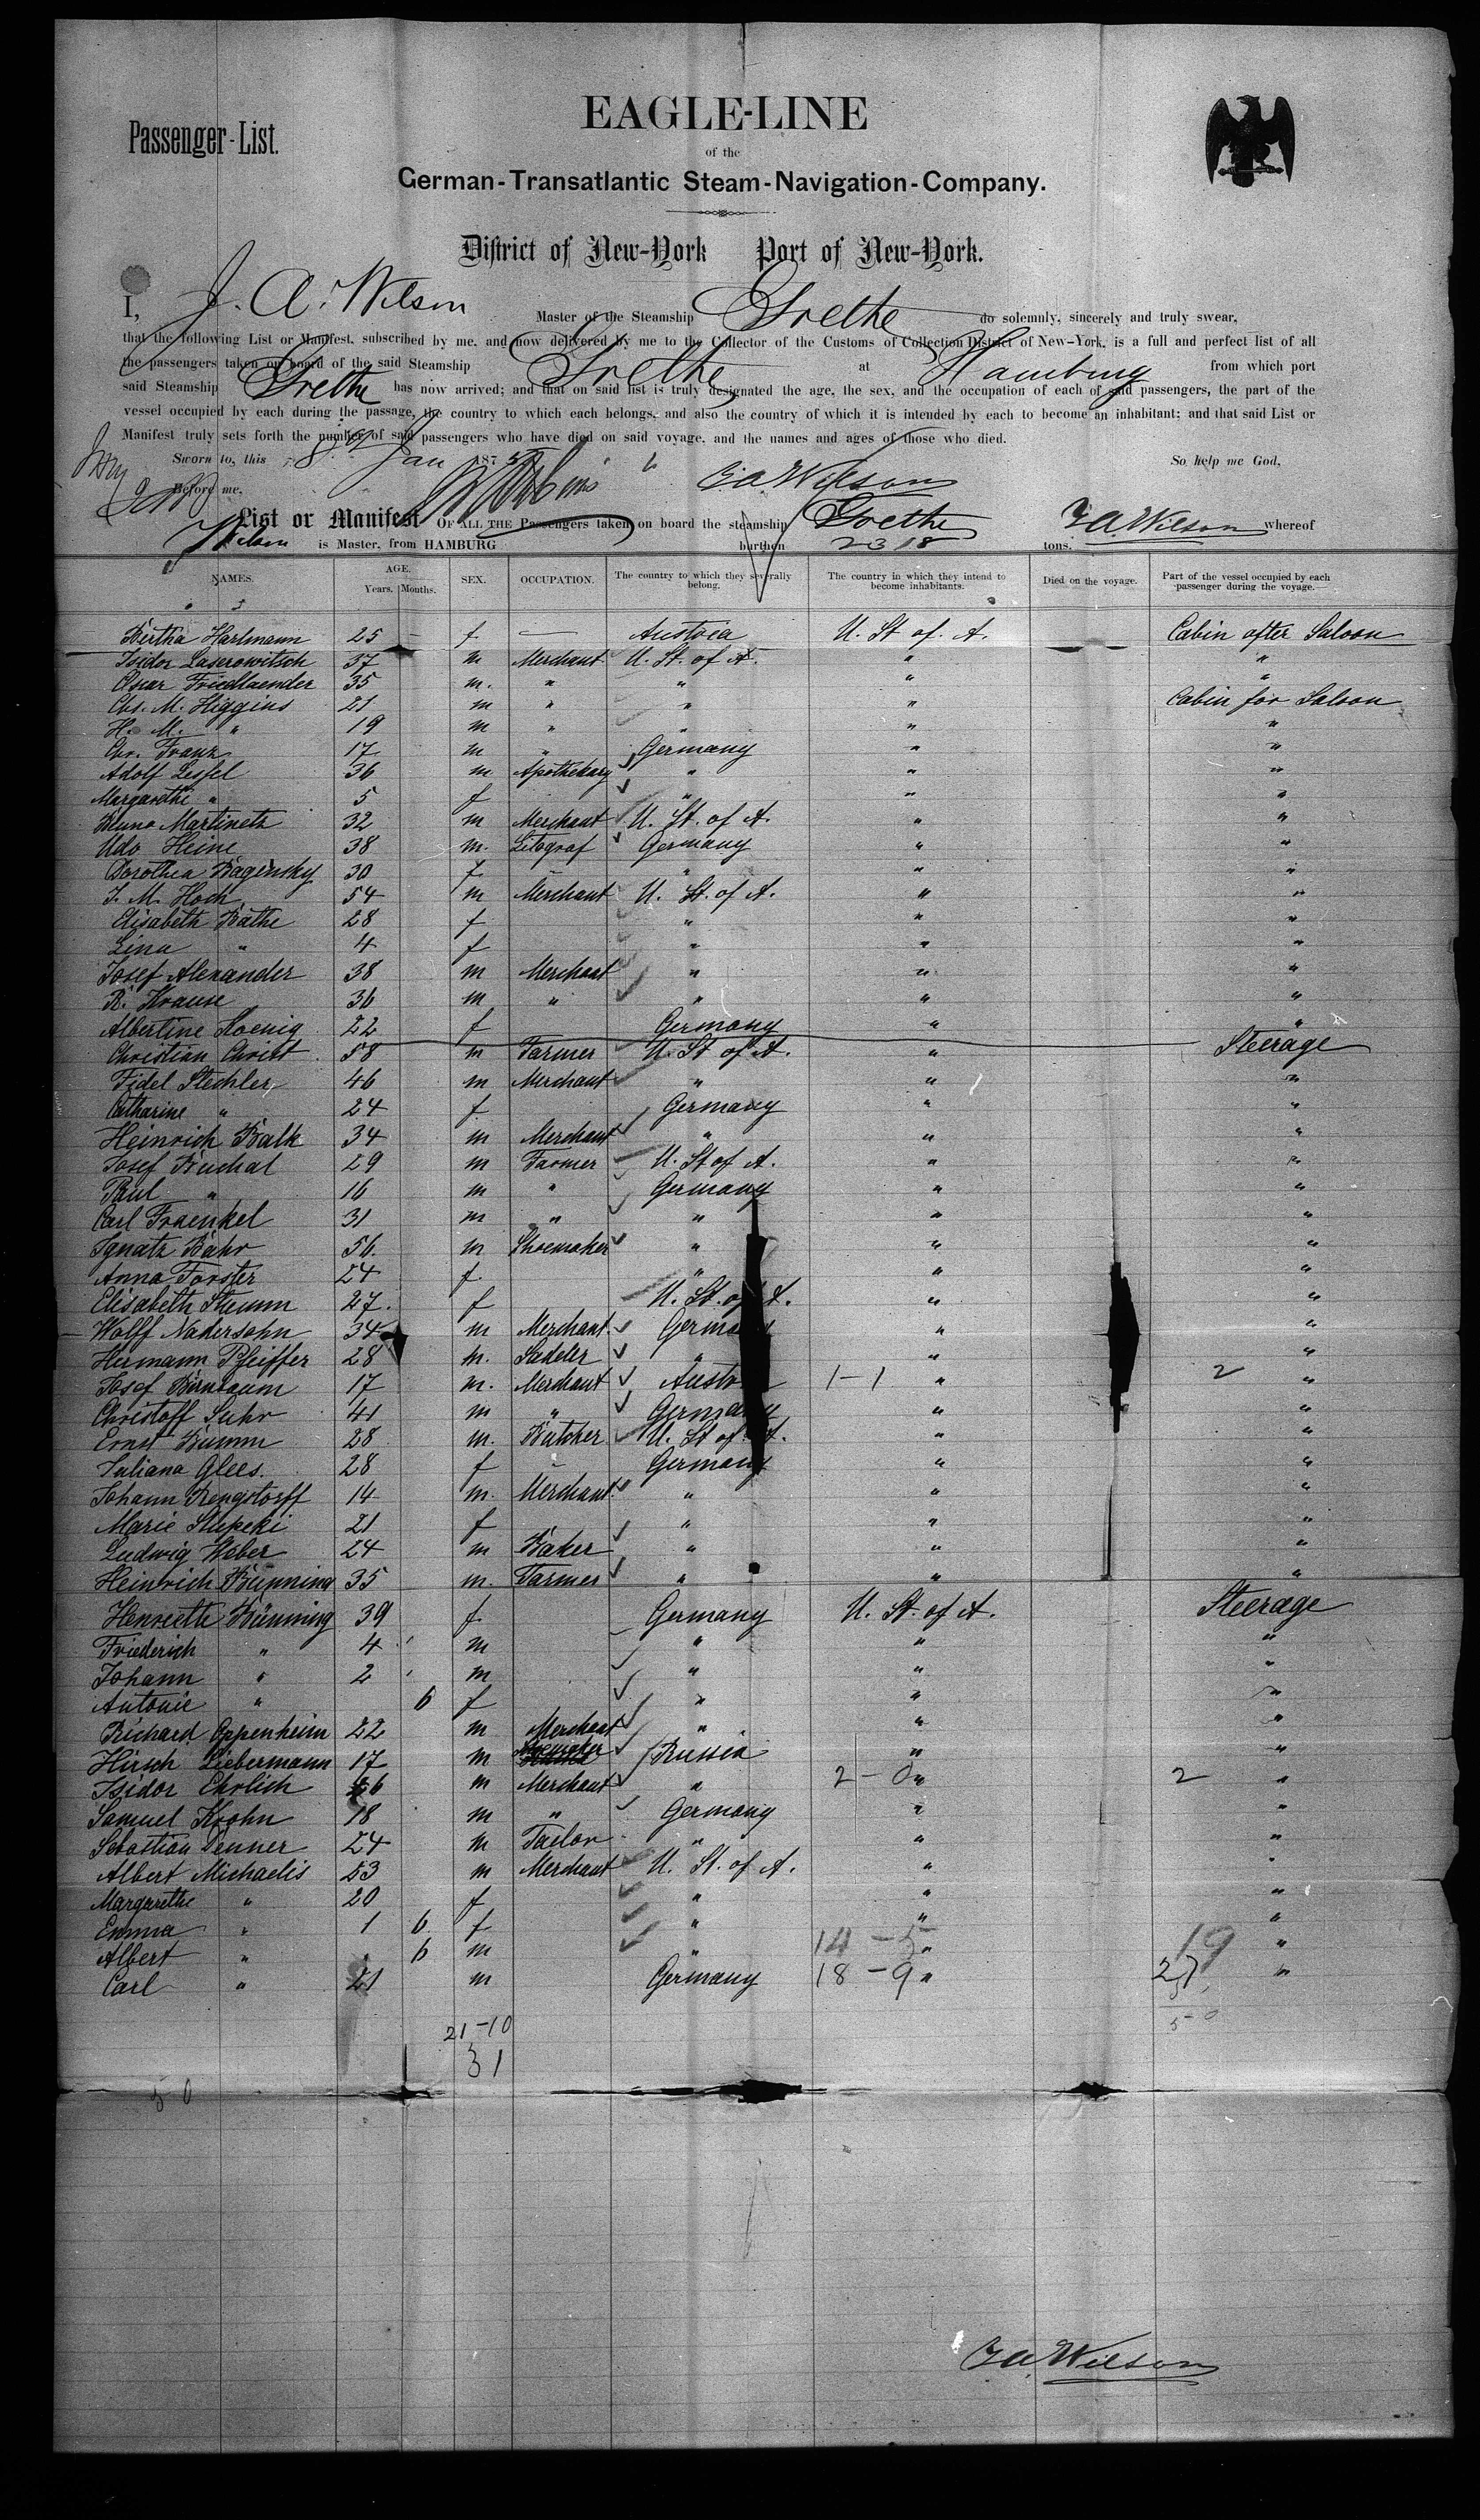 Passenger-List.
EAGLE-LINE
of the
German-Transatlantic Steam-Navigation-Company.
District of New-York Port of New-York.
I, J. A. Wilson Master of the Steamship Goethe do solemnly, sincerely and truly swear,
that the following List or Manifest, subscribed by me, and now delivered by me to the Collector of the Customs of Collection District of New-York, is a full and perfect list of all
the passengers taken on board of the said Steamship Goethe at Hamburg from which port
said Steamship Goethe has now arrived; and that on said list is truly designated the age, the sex, and the occupation of each of said passengers, the part of the
vessel occupied by each during the passage, the country to which each belongs, and also the country of which it is intended by each to become an inhabitant; and that said List or
Manifest truly sets forth the number of said passengers who have died on said voyage, and the names and ages of those who died.
Sworn to, this 8 Jan 187 So help me God,
Before me, J A Wilson
List or Manifest OF ALL THE Passengers taken on board the steamship Goethe J A Wilson whereof
Wilson is Master, from HAMBURG burthen 2318 tons.
NAMES. AGE. Years. Months. SEX. OCCUPATION. The country to which they severally belong. The country in which they intend to become inhabitants. Died on the voyage. Part of the vessel occupied by each passenger during the voyage.
Bertha Hartmann 25 — f — Austria U. St of. A. Cabin after Saloon
Isidor Laserowitsch 37 m Merchant U. St. of A. " "
Oscar Friedlaender 35 m. " " " "
Chs. M. Higgins 21 m " " " Cabin for Saloon
H. M. " 19 m " " " "
Chr. Franz 17 m " Germany " "
Adolf Lessel 36 m Apothekary " " "
Margarethe " 5 f " " "
Bruno Martinetz 32 m Merchant U. St. of A. " "
Udo Heine 38 m. Litograf Germany " "
Dorothea Bagensky 30 f " " "
J. M. Hoch 54 m Merchant U. St. of A. " "
Elisabeth Bathe 28 f " " "
Lina " 4 f " " "
Josef Alexander 38 m Merchant " " "
R. Krause 36 m " " " "
Albertine Koenig 22 f Germany " "
Christian Christ 58 m Farmer U. St of A. " Steerage
Fidel Stechler 46 m Merchant " " "
Catharine " 24 f Germany " "
Heinrich Balk 34 m Merchant " " "
Josef Buchal 29 m Farmer U. St of A. " "
Paul " 16 m " Germany " "
Carl Fraenkel 31 m " " " "
Ignatz Bahr 56. m Shoemaker " " "
Anna Forster 24 f " " "
Elisabeth Stumm 27. f U. St. of A. " "
Wolff Nathersohn 34 m Merchant. Germany " "
Hermann Pfeiffer 28 m. Sadeler " " "
Josef Birnbaum 17 m. Merchant Austria 1-1 " 2 "
Christoff Suhr 41 m " Germany " "
Ernst Bumm 28 m. Butcher U. St of A. " "
Juliana Glees. 28 f - Germany " "
Johann Rengstorff 14 m. Merchant. " " "
Marie Slupeki 21 f " " "
Ludwig Weber 24 m Baker " " "
Heinrich Bünning 35 m. Farmer " " "
Henriette Bünning 39 f. Germany U. St. of A. Steerage
Friederich " 4 m " " "
Johann " 2 m " " "
Antonie " 6 f " " "
Richard Oppenheim 22 m Merchant " " "
Hirsch Liebermann 17 m Russia " "
Isidor Ehrlich m Merchant " 2-0 " 2 "
Samuel Krohn 18 m " Germany " "
Sebastian Denner 24 m Tailor " " "
Albert Michaelis 53 m Merchant U. St. of A. " "
Margarethe " 20 f " " "
Emma " 1 6 f " " "
Albert " 6 m " 14-5 " 19 "
Carl " 21 m Germany 18-9 " 27 "
21-10 5-0
31
50
J A Wilson